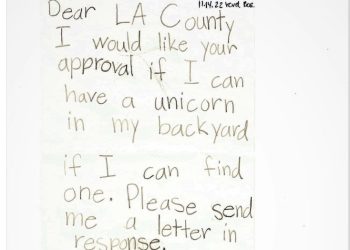 Dear LA County
11.14.22
I would like your
approval if I can
have a unicorn
in my backyard
if I can find
one. Please send
me a letter in
response.